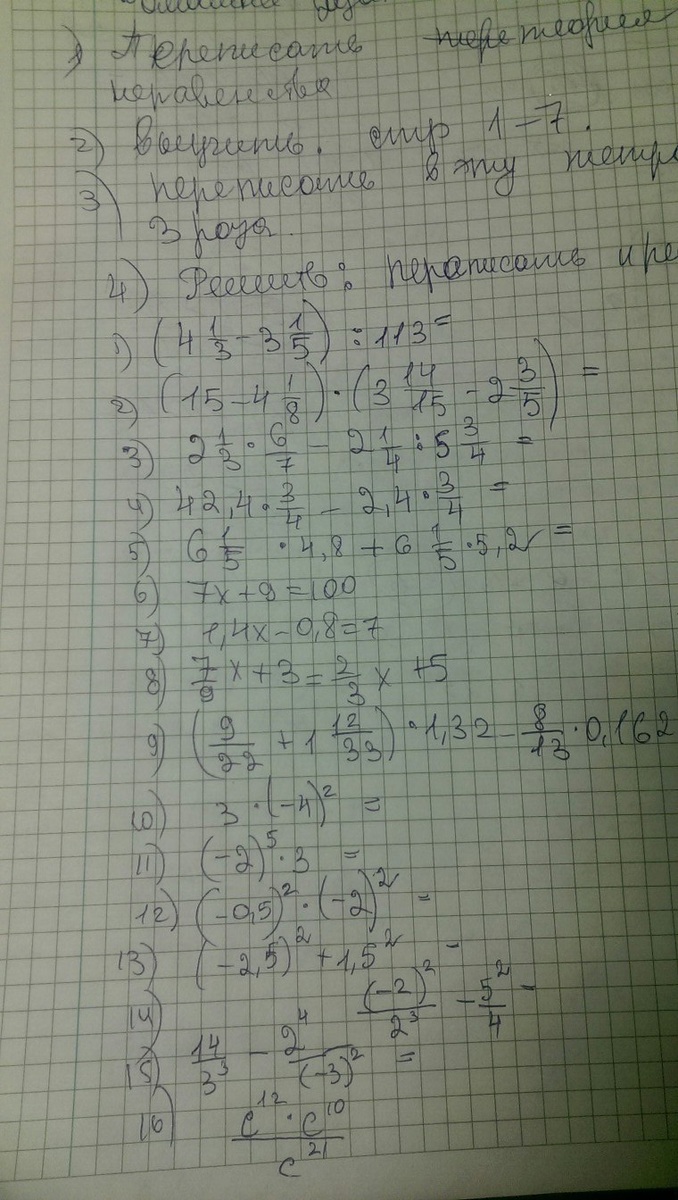 1) Переписать теория
неравенства
2) Выучить. стр 1-7.
3) переписать в эту тетр
3 раза.
4) Решить: переписать и ре
1) (4 1/3 - 3 1/5) : 113 =
2) (15 - 4 1/8) · (3 14/15 - 2 3/5) =
3) 2 1/3 · 6/7 - 2 1/4 : 5 3/4 =
4) 42,4 · 3/4 - 2,4 · 3/4 =
5) 6 1/5 · 4,8 + 6 1/5 · 5,2 =
6) 7x + 9 = 100
7) 1,4x - 0,8 = 7
8) 7/9 x + 3 = 2/3 x + 5
9) (9/22 + 1 12/33) · 1,32 - 8/13 · 0,162
10) 3 · (-4)² =
11) (-2)⁵ · 3 =
12) (-0,5)² · (-2)² =
13) (-2,5)² + 1,5² =
14) (-2)²/2³ - 5²/4 =
15) 14/3³ - 2⁴/(-3)² =
16) c¹² · c¹⁰ / c²¹